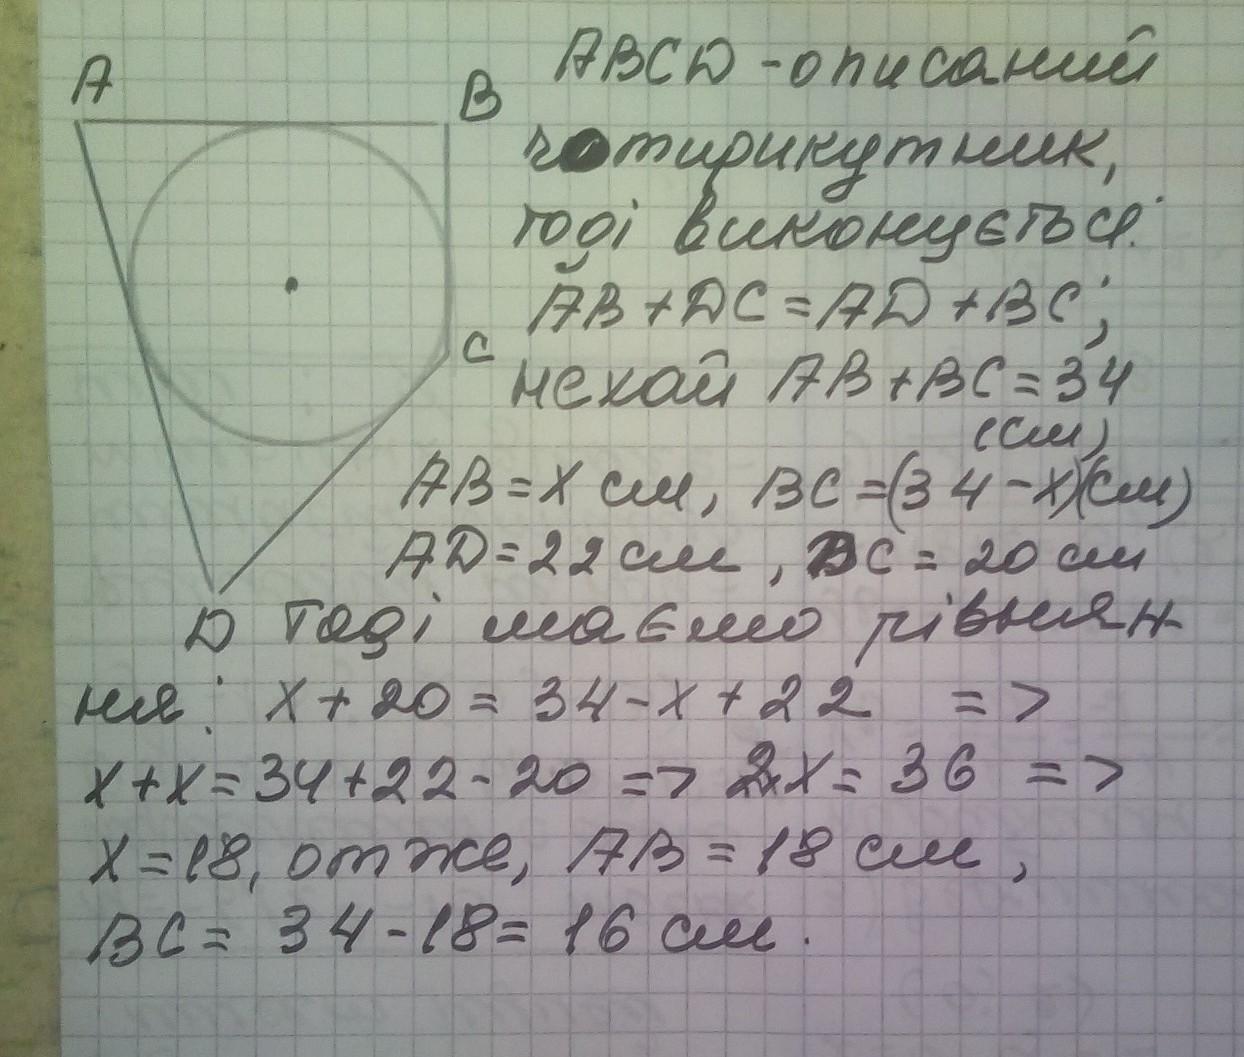 A
B
C
D
ABCD - описаний
чотирикутник,
тоді виконується:
AB + DC = AD + BC;
нехай AB + BC = 34
(см)
AB = x см, BC = (34 - x)(см)
AD = 22 см, BC = 20 см
Тоді маємо рівнян-
ня: x + 20 = 34 - x + 22 =>
x + x = 34 + 22 - 20 => 2x = 36 =>
x = 18, отже, AB = 18 см,
BC = 34 - 18 = 16 см.